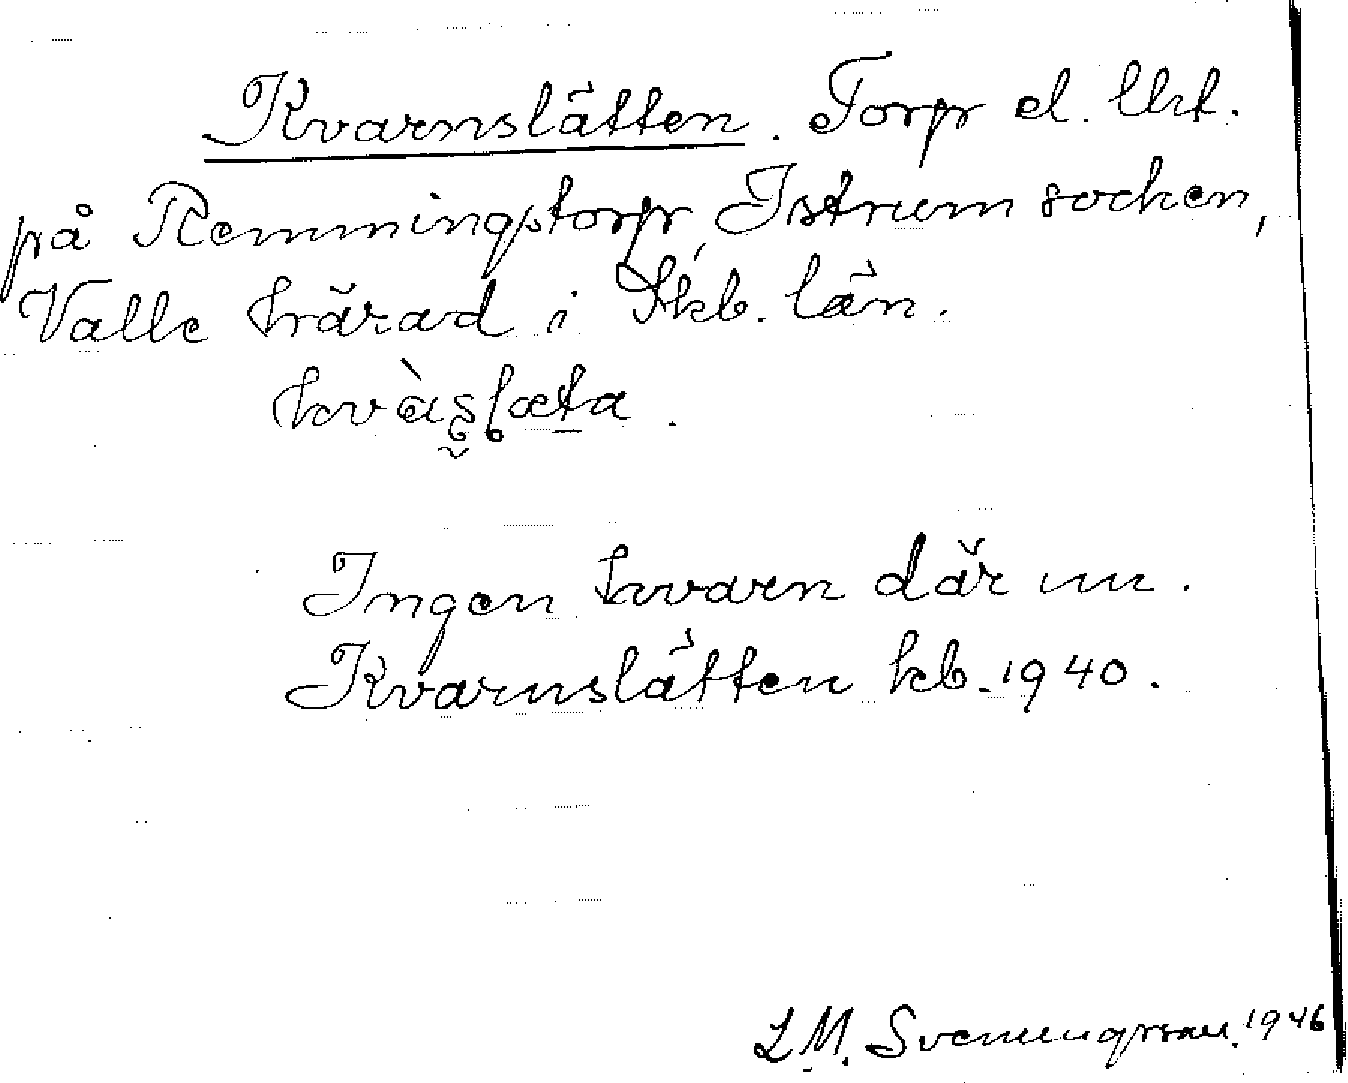 Kvarnslätten. Torp el. lht.
på Remmingstorp, Istrum socken,
Valle härad i Skb. län.
Ingen kvarn där nu.
Kvarnslätten kb. 1940.
L.M. Svenungsson. 1946